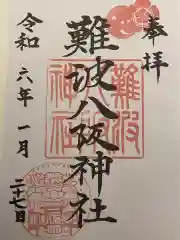 奉拝
難波八阪神社
令和六年一月二十七日
難波
神社